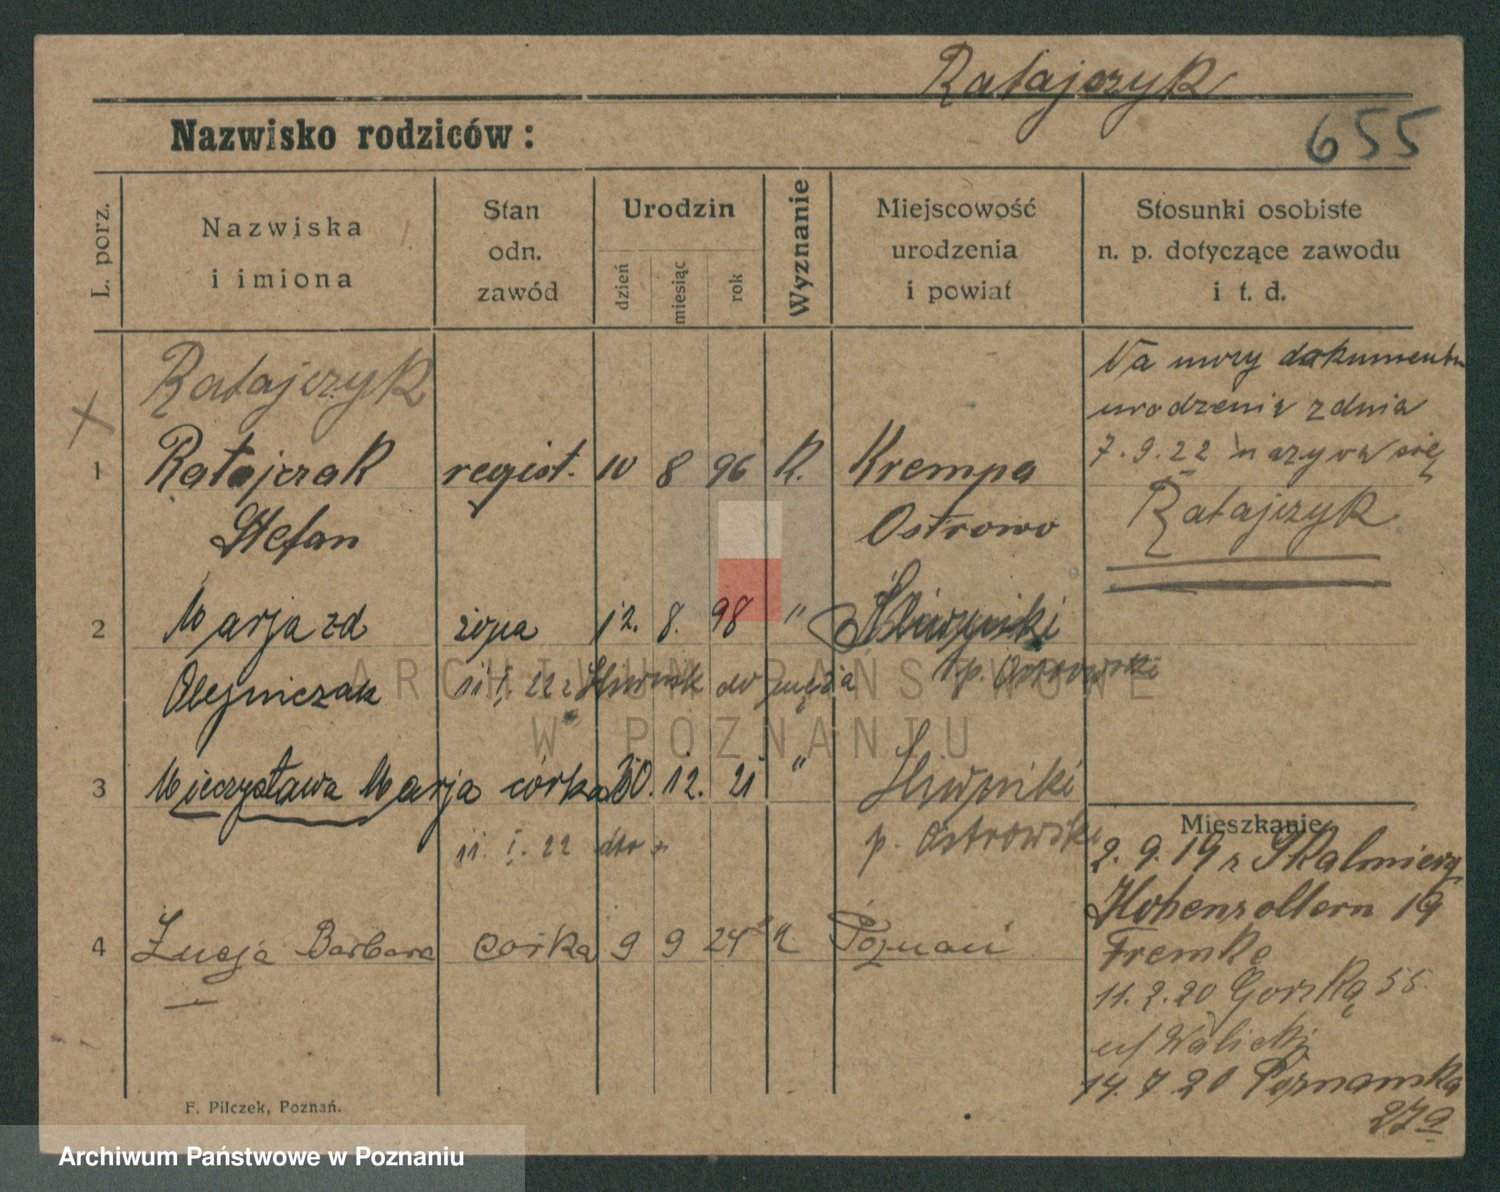 Ratajczyk
655
Nazwisko rodziców:
L. porz.
Nazwiska
i imiona
Stan
odn.
zawód
Urodzin
dzień
miesiąc
rok
Wyznanie
Miejscowość
urodzenia
i powiat
Stosunki osobiste
n. p. dotyczące zawodu
i t. d.
Ratajczyk
1 Ratajczak regist. 10 8 96 K. Krempa
Stefan Ostrowo
Na mocy dokumentu
urodzenia z dnia
7.9.22 nazywa się
Ratajczyk
2 Marja zd żona 12. 8. 98 " Śliwniki
Olejniczak 11. I. 22 z Śliwnik do męża p. Ostrowski
3 Mieczysława Marja córka 30. 12. 21 " Śliwniki
11. I. 22 dto p. Ostrowski
4 Łucja Barbara córka 9 9 24 K Poznań
Mieszkanie
2.9.19 z Skalmierzyc
Hohenzollern 19
Fremke
11.2.20 Gorską 55.
u/ Walicki
14.7.20 Poznańska
27a
F. Pilczek, Poznań.
ARCHIWUM PAŃSTWOWE
W POZNANIU
Archiwum Państwowe w Poznaniu